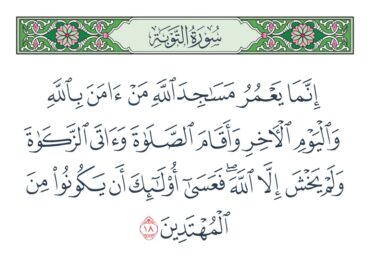 سُورَةُ التَّوْبَةِ
إِنَّمَا يَعْمُرُ مَسَٰجِدَ ٱللَّهِ مَنْ ءَامَنَ بِٱللَّهِ
وَٱلْيَوْمِ ٱلْأَخِرِ وَأَقَامَ ٱلصَّلَوٰةَ وَءَاتَى ٱلزَّكَوٰةَ
وَلَمْ يَخْشَ إِلَّا ٱللَّهَۖ فَعَسَىٰٓ أُو۟لَٰٓئِكَ أَن يَكُونُوا۟ مِنَ
ٱلْمُهْتَدِينَ ١٨